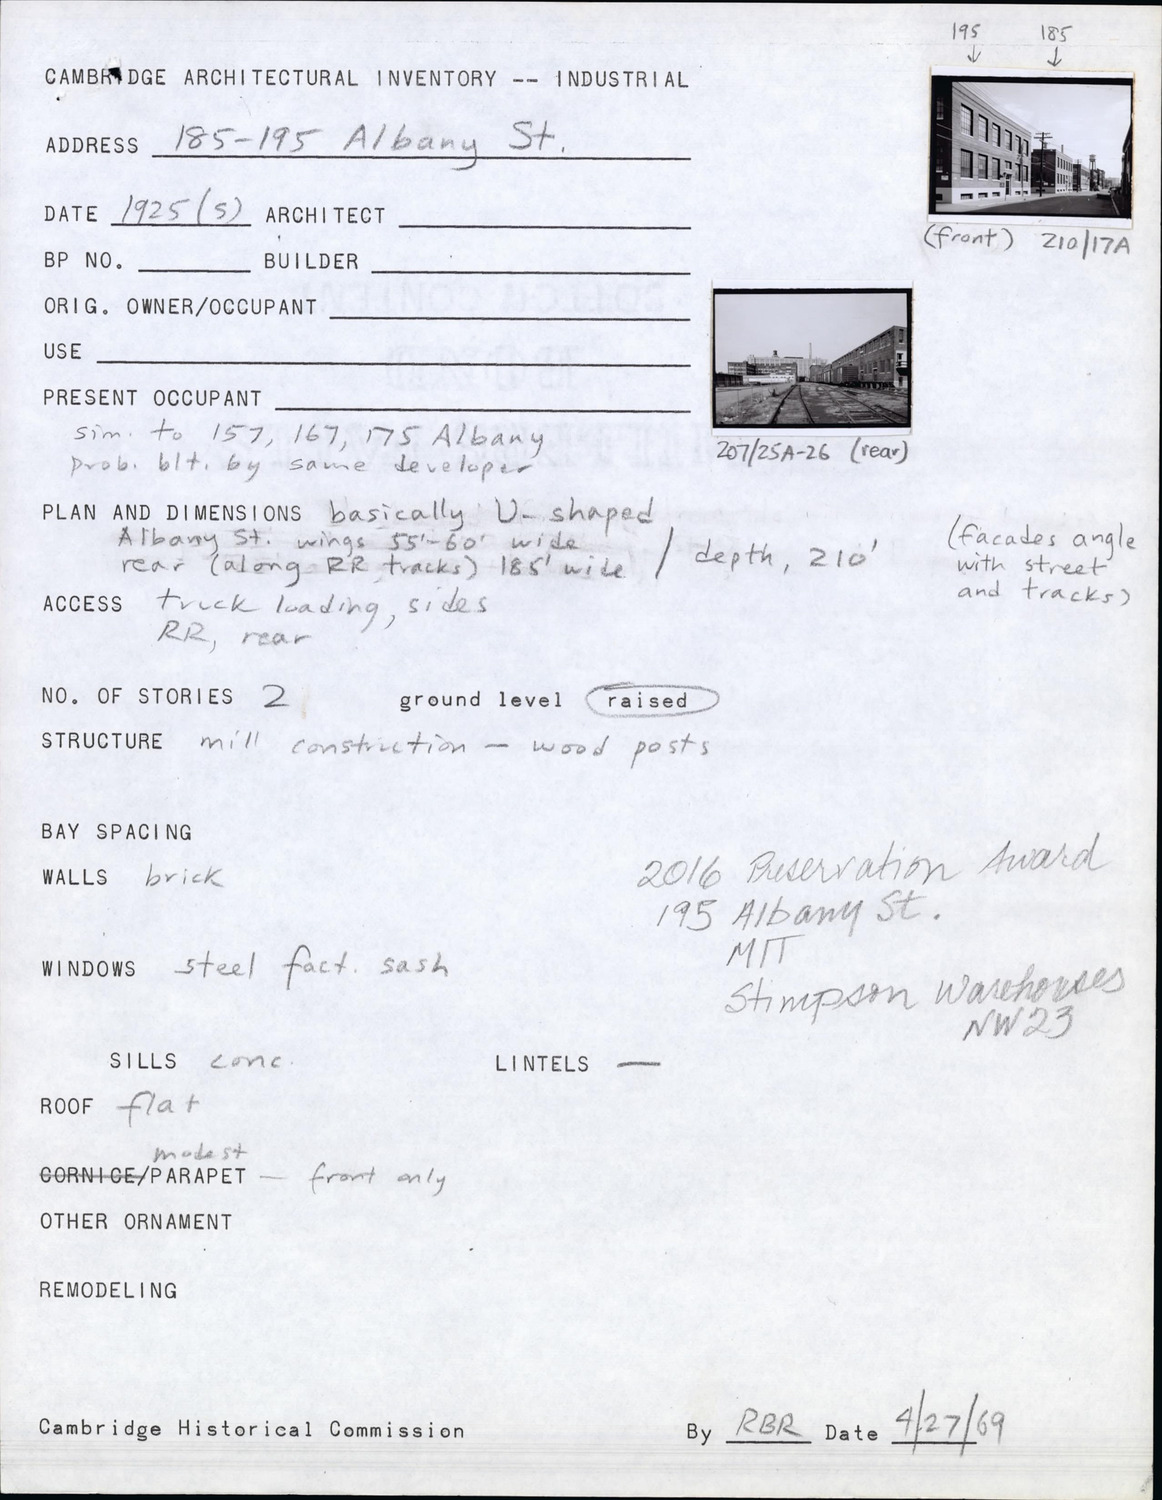 195 185
CAMBRIDGE ARCHITECTURAL INVENTORY -- INDUSTRIAL
ADDRESS 185-195 Albany St.
DATE 1925(s) ARCHITECT
(front) 210/17A
BP NO. BUILDER
ORIG. OWNER/OCCUPANT
USE
PRESENT OCCUPANT
sim. to 157, 167, 175 Albany
207/25A-26 (rear)
prob. blt. by same developer
PLAN AND DIMENSIONS basically U-shaped
Albany St. wings 55'-60' wide
rear (along RR tracks) 185' wide / depth, 210'
(facades angle
with street
and tracks)
ACCESS truck loading, sides
RR, rear
NO. OF STORIES 2 ground level raised
STRUCTURE mill construction — wood posts
BAY SPACING
WALLS brick
2016 Preservation Award
195 Albany St.
MIT
Stimpson Warehouses
NW23
WINDOWS steel fact. sash
SILLS conc. LINTELS —
ROOF flat
modest
CORNICE/PARAPET — front only
OTHER ORNAMENT
REMODELING
Cambridge Historical Commission By RBR Date 4/27/69